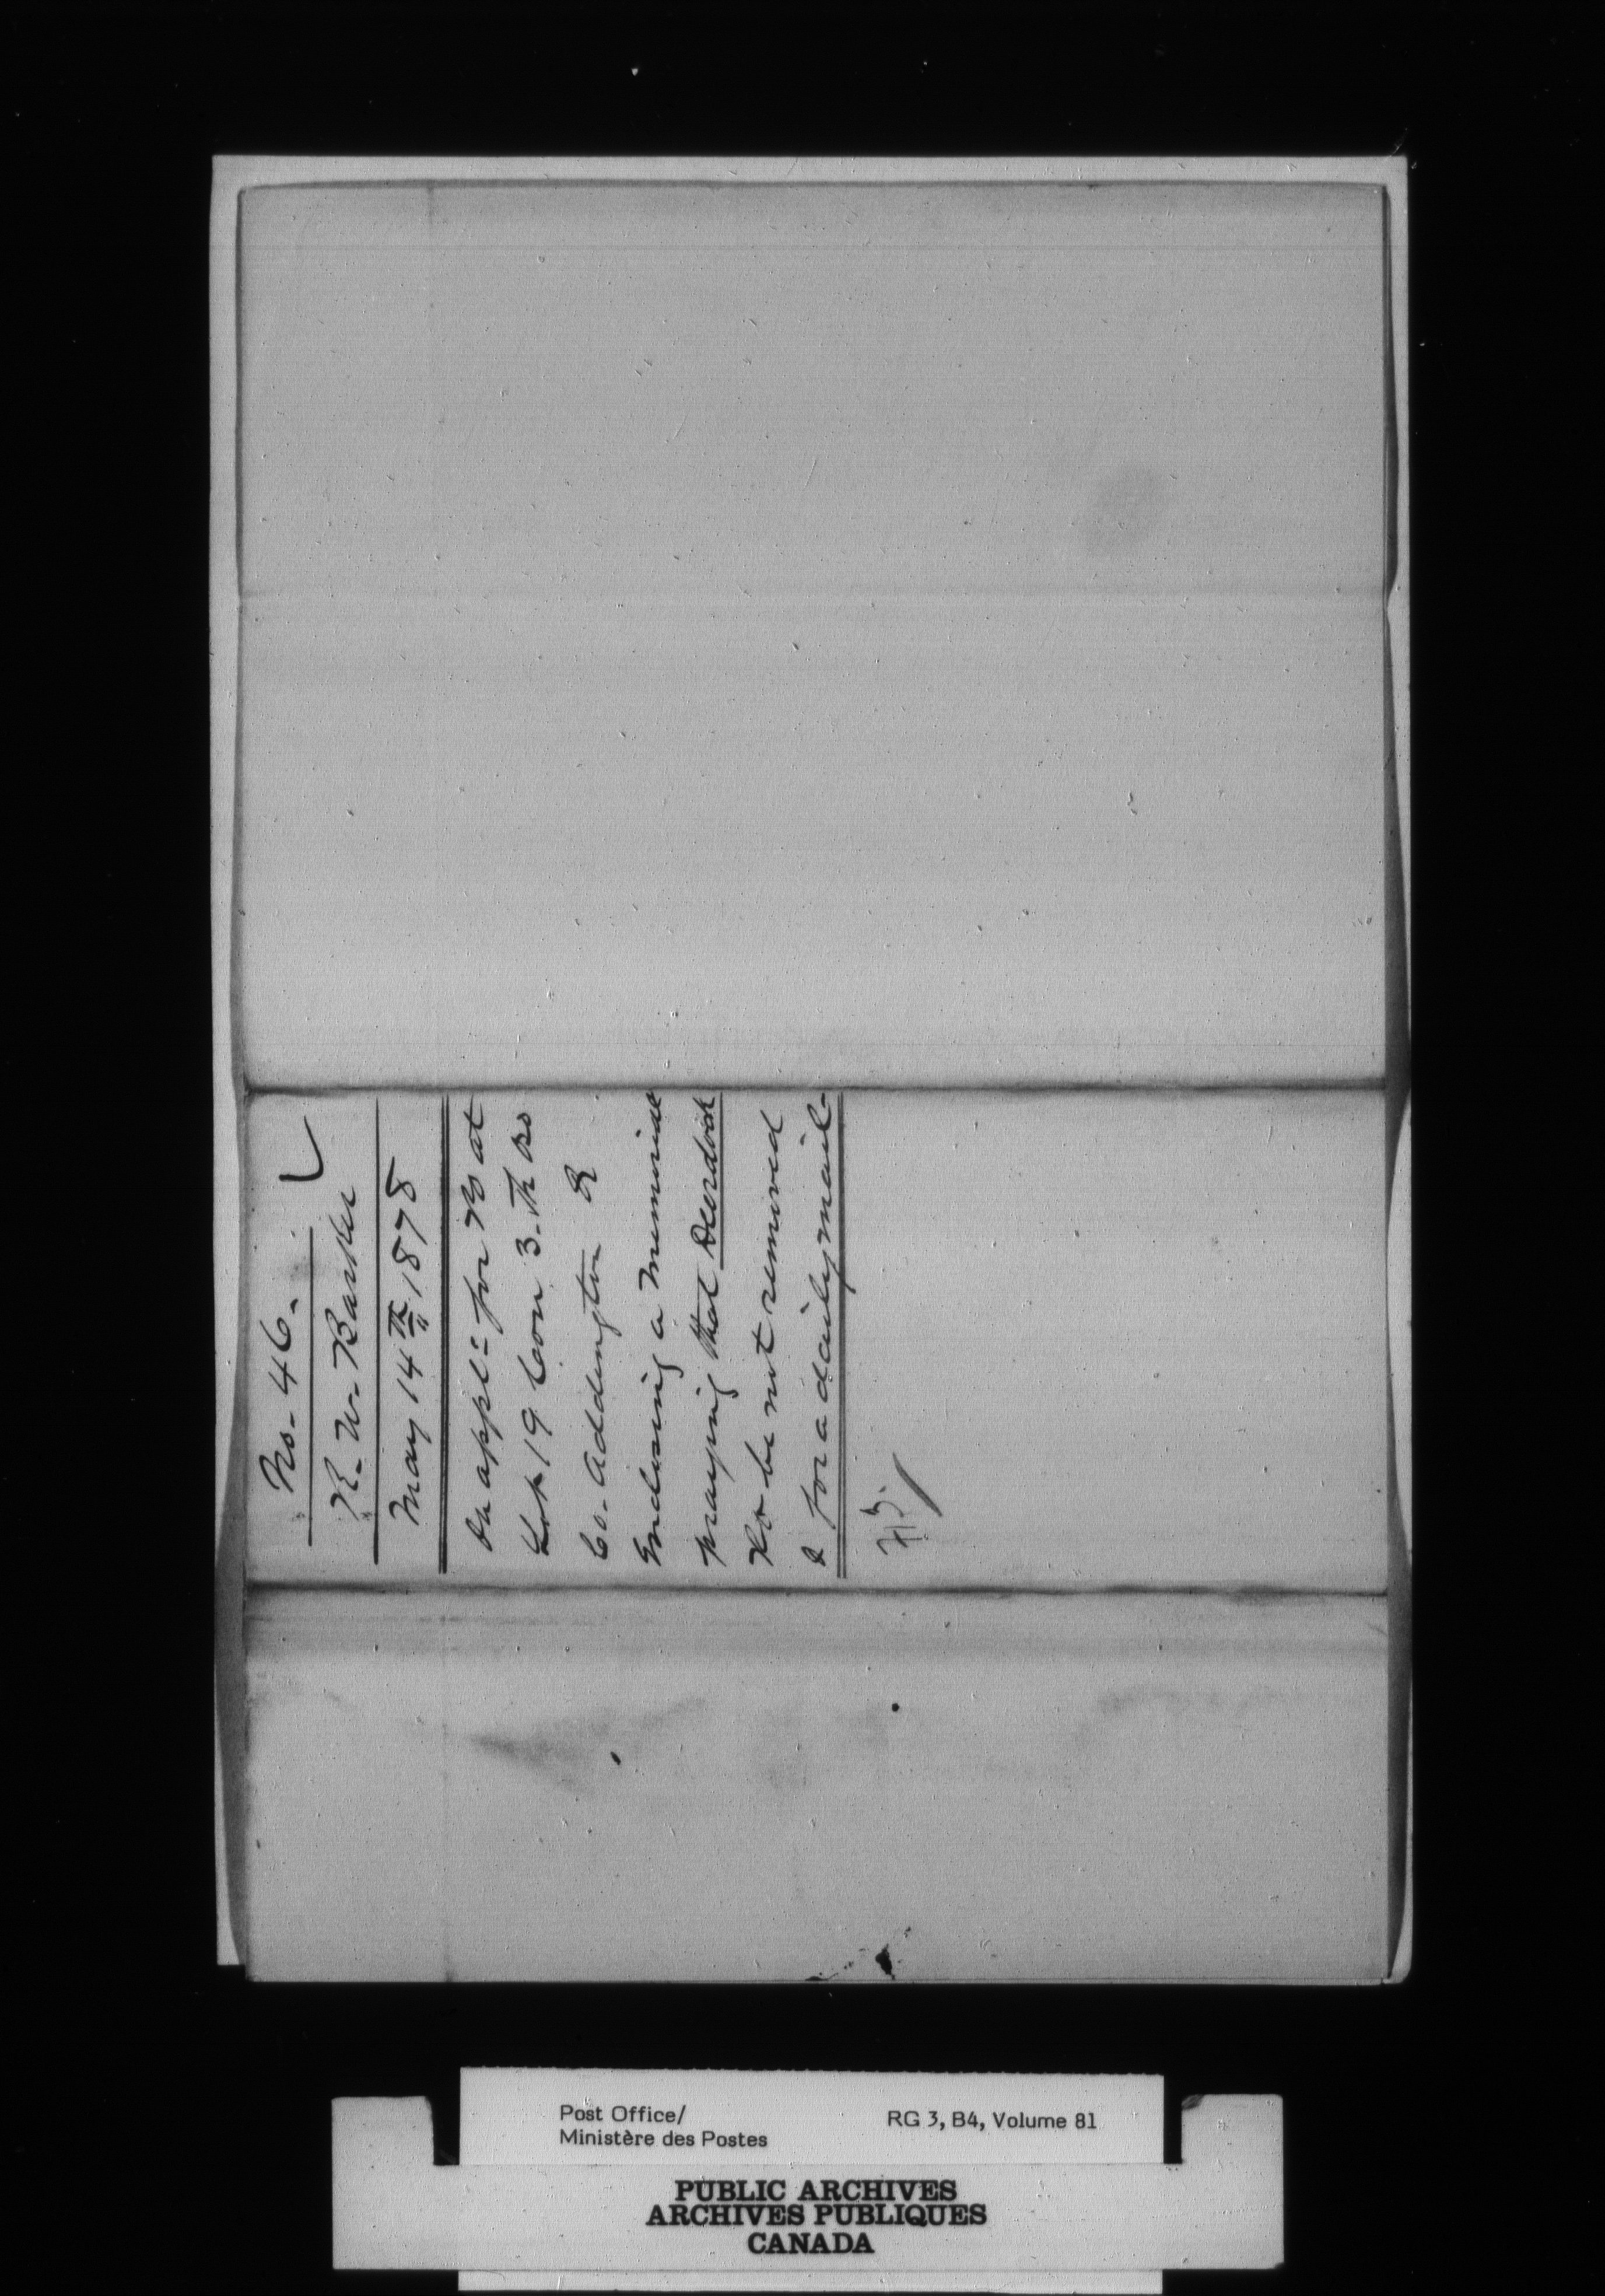 No. 46.
R. W. Barker
May 14th 1878
On appl: for PO at
Lot 19 Con 3. The so
Co. Addington R
Enclosing a Memorial
praying that Deerdock
PO be not removed
& for a daily mail
Post Office/
Ministère des Postes
RG 3, B4, Volume 81
PUBLIC ARCHIVES
ARCHIVES PUBLIQUES
CANADA